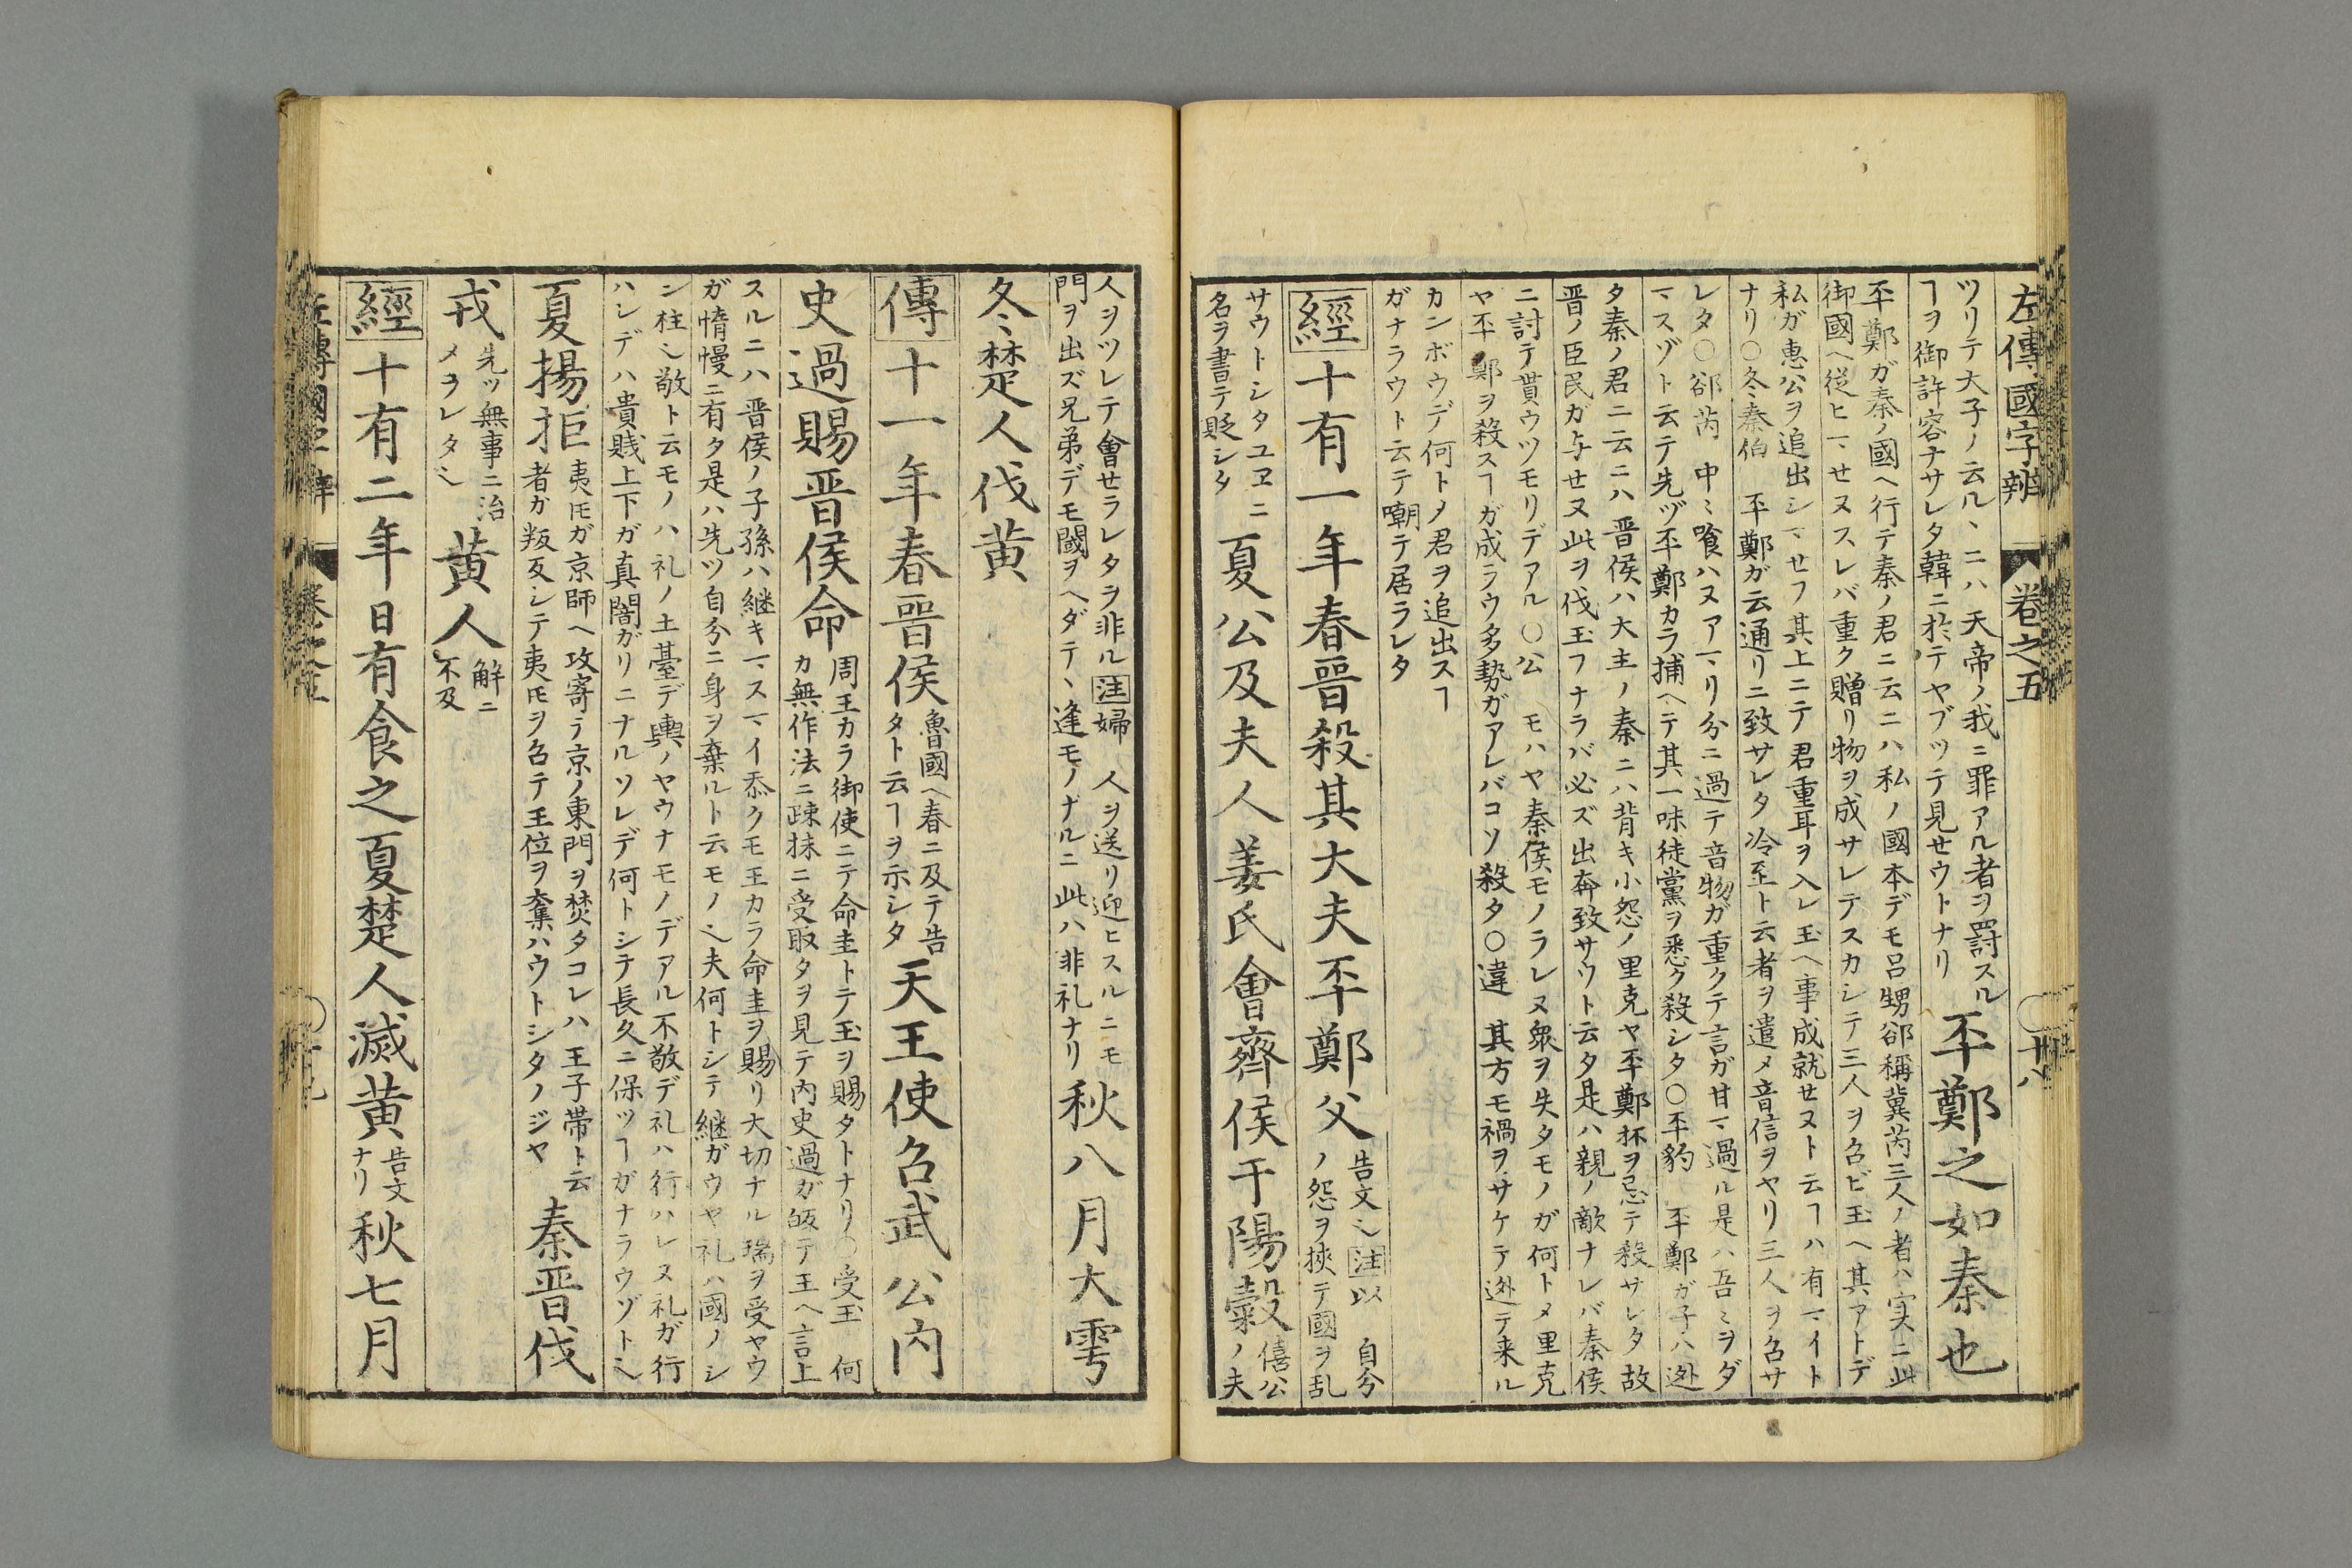 左傳國字辨 卷之五 ○十八
ツリテ大子ノ云ル、ニハ天帝ノ我ニ罪アル者ヲ罸スル
ヿヲ御許容ナサレタ韓ニ於テヤブツテ見せウトナリ
丕鄭之如秦也
丕鄭ガ秦ノ國ヘ行テ秦ノ君ニ云ニハ私ノ國本デモ呂甥郤稱冀芮三人ノ者ハ実ニ此
御國ヘ従ヒマせヌスレバ重ク贈リ物ヲ成サレテスカシテ三人ヲ召ビ玉ヘ其アトデ
私ガ惠公ヲ追出シマせフ其上ニテ君重耳ヲ入レ玉ヘ事成就せヌト云ヿハ有マイト
ナリ○冬秦伯 丕鄭ガ云通リニ致サレタ冷至ト云者ヲ遣メ音信ヲヤリ三人ヲ召サ
レタ○郤芮 中〻喰ハヌアマリ分ニ過テ音物ガ重クテ言ガ甘マ過ル是ハ吾〻ヲダ
マスゾト云テ先ヅ丕鄭カラ捕ヘテ其一味徒黨ヲ悉ク殺シタ○丕豹 丕鄭ガ子ハ迯
タ秦ノ君ニ云ニハ晋侯ハ大主ノ秦ニハ背キ小怨ノ里克ヤ丕鄭抔ヲ忌テ殺サレタ故
晋ノ臣民ガ与せヌ此ヲ伐玉フナラバ必ズ出奔致サウト云タ是ハ親ノ敵ナレバ秦侯
ニ討テ貰ウツモリデアル○公 モハヤ秦侯モノラレヌ衆ヲ失タモノガ何トメ里克
ヤ丕鄭ヲ殺スヿガ成ラウ多勢ガアレバコソ殺タ○違 其方モ禍ヲサケテ迯テ来ル
カンボウデ何トメ君ヲ追出スヿ
ガナラウト云テ嘲テ居ラレタ
經十有一年春晋殺其大夫丕鄭父
告文也注以 自分
ノ怨ヲ挾テ國ヲ乱
サウトシタユヱニ
名ヲ書テ貶シタ
夏公及夫人姜氏會齊侯于陽穀
僖公
ノ夫
人ヲツレテ會せラレタヲ非ル注婦 人ヲ送リ迎ヒスルニモ
門ヲ出ズ兄弟デモ閾ヲヘダテヽ逢モノナルニ此ハ非礼ナリ
秋八月大雩
冬楚人伐黄
傳十一年春晋侯
魯國ヘ春ニ及テ告
タト云ヿヲ示シタ
天王使召武公内
史過賜晋侯命
周王カラ御使ニテ命圭トテ玉ヲ賜タトナリ○受玉 何
カ無作法ニ疎抹ニ受取タヲ見テ内史過ガ皈テ王ヘ言上
スルニハ晋侯ノ子孫ハ継キマスマイ忝クモ王カラ命圭ヲ賜リ大切ナル瑞ヲ受ヤウ
ガ惰慢ニ有タ是ハ先ツ自分ニ身ヲ棄ルト云モノ也夫何トシテ継ガウヤ礼ハ國ノシ
ン柱也敬ト云モノハ礼ノ土臺デ輿ノヤウナモノデアル不敬デ礼ハ行ハレヌ礼ガ行
ハレデハ貴賎上下ガ真闇ガリニナルソレデ何トシテ長久ニ保ツヿガナラウゾト也
夏揚拒
夷氏ガ京師ヘ攻寄テ京ノ東門ヲ焚タコレハ王子帯ト云
者ガ叛反シテ夷氏ヲ召テ王位ヲ奪ハウトシタノジヤ
秦晋伐
戎
先ツ無事ニ治
メヲレタ也
黄人
解ニ
不及
經十有二年日有食之夏楚人滅黄
告文
ナリ
秋七月
左傳國字辨 卷之五 ○十九